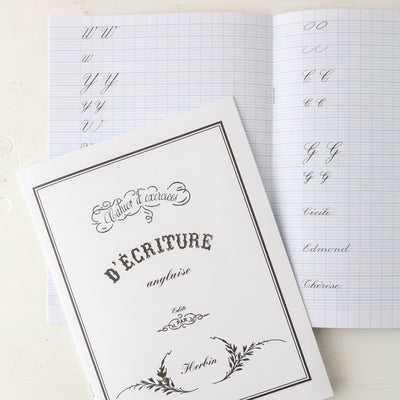 W W
w
Y Y
Y Y
O O
C C
C C
G G
G G
Cécile
Edmond
Thérèse
Cahier d'exercices
D'ÉCRITURE
anglaise
Edité
PAR
Herbin